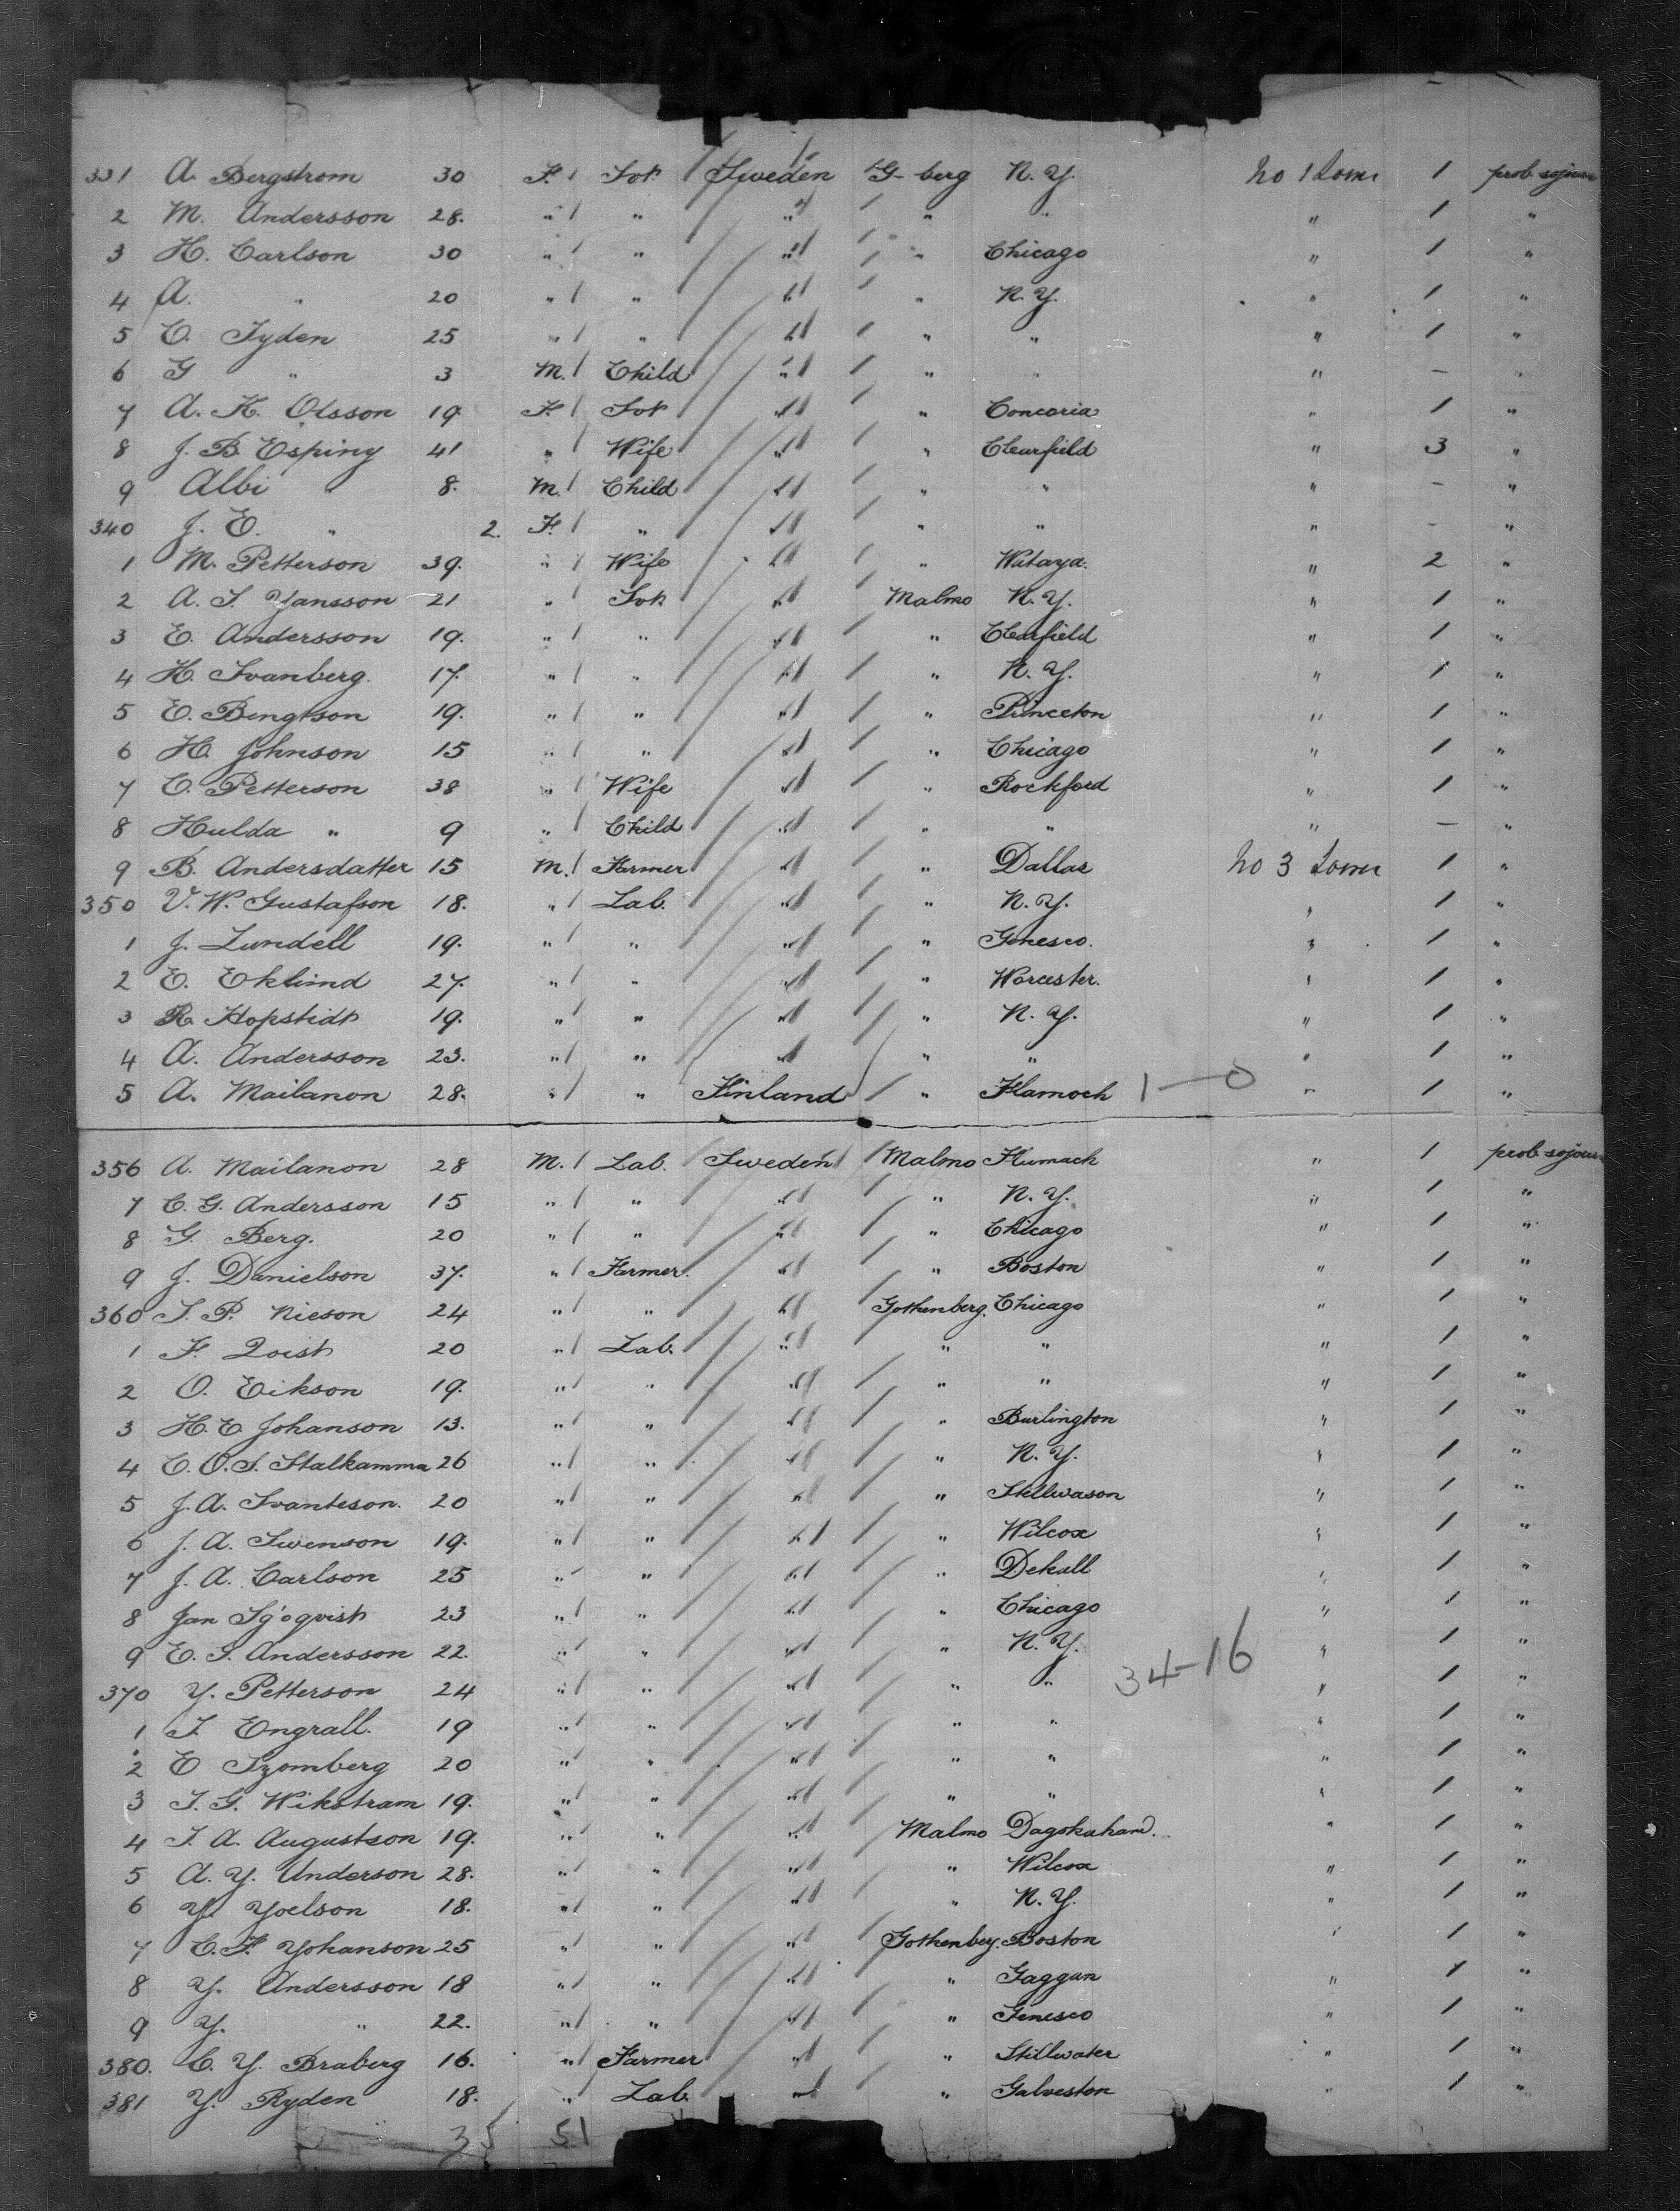 331 A. Bergstrom 30 F. Svt Sweden G-berg N.Y. No 1 Lower 1 prob sojourn
2 M. Andersson 28. " " " " " " 1 "
3 H. Carlson 30 " " " " Chicago " 1 "
4 A. " 20 " " " " N.Y. " 1 "
5 C. Tyden 25 " " " " " " 1 "
6 G " 3 M. Child " " " " – "
7 A. H. Olsson 19. F. Svt " " Concoria " 1 "
8 J. B. Espiny 41 " Wife " " Clearfield " 3 "
9 Albi " 8. M. Child " " " " – "
340 J. E. " 2. F. " " " " " – "
1 M. Petterson 39. " Wife " " Wataya. " 2 "
2 A. S. Yansson 21 " Svt " Malmo N.Y. " 1 "
3 E. Andersson 19. " " " " Clearfield " 1 "
4 H. Svanberg. 17. " " " " N.Y. " 1 "
5 E. Bengtson 19. " " " " Princeton " 1 "
6 H. Johnson 15 " " " " Chicago " 1 "
7 C. Petterson 38 " Wife " " Rockford " 1 "
8 Hulda " 9 " Child " " " " – "
9 B. Andersdatter 15 M. Farmer " " Dallas No 3 Lower 1 "
350 V. W. Gustafson 18. " Lab. " " N.Y. " 1 "
1 J. Lundell 19. " " " " Genesco. " 1 "
2 E. Eklimd 27. " " " " Worcester. " 1 "
3 R. Hopstidt 19. " " " " N.Y. " 1 "
4 A. Andersson 23. " " " " " " 1 "
5 A. Mailanon 28. " " Finland " Hamoch 1–0 " 1 "
356 A. Mailanon 28 M. Lab. Sweden Malmo Humach " 1 prob sojourn
7 C. G. Andersson 15 " " " " N.Y. " 1 "
8 G. Berg. 20 " " " " Chicago " 1 "
9 J. Danielson 37. " Farmer. " " Boston " 1 "
360 S. P. Nieson 24 " " " Gothenberg. Chicago " 1 "
1 F. Qvist 20 " Lab. " " " " 1 "
2 O. Eikson 19. " " " " " " 1 "
3 H. E. Johanson 13. " " " " Burlington " 1 "
4 C. O. S. Stalkamma 26 " " " " N.Y. " 1 "
5 J. A. Svanteson. 20 " " " " Stellwason " 1 "
6 J. A. Swenson 19. " " " " Wilcox " 1 "
7 J. A. Carlson 25 " " " " Dekall " 1 "
8 Jan Sjoqvist 23 " " " " Chicago " 1 "
9 E. S. Andersson 22. " " " " N.Y. " 1 "
34–16
370 Y. Petterson 24 " " " " " " 1 "
1 T. Engrall. 19 " " " " " " 1 "
2 E Szomberg 20 " " " " " " 1 "
3 T. G. Wikstram 19. " " " " " " 1 "
4 T. A. Augustson 19. " " " Malmo Dagskahand. " 1 "
5 A. Y. Anderson 28. " " " " Wilcox " 1 "
6 Y. Yoelson 18. " " " " N.Y. " 1 "
7 C. F. Yohanson 25 " " " Gothenbey. Boston " 1 "
8 Y. Andersson 18 " " " " Gaggan " 1 "
9 Y. " 22. " " " " Genesco " 1 "
380. C. Y. Braberg 16. " Farmer " " Stillwater " 1 "
381 Y. Ryden 18. " Lab. " " Galveston " 1 "
35 51